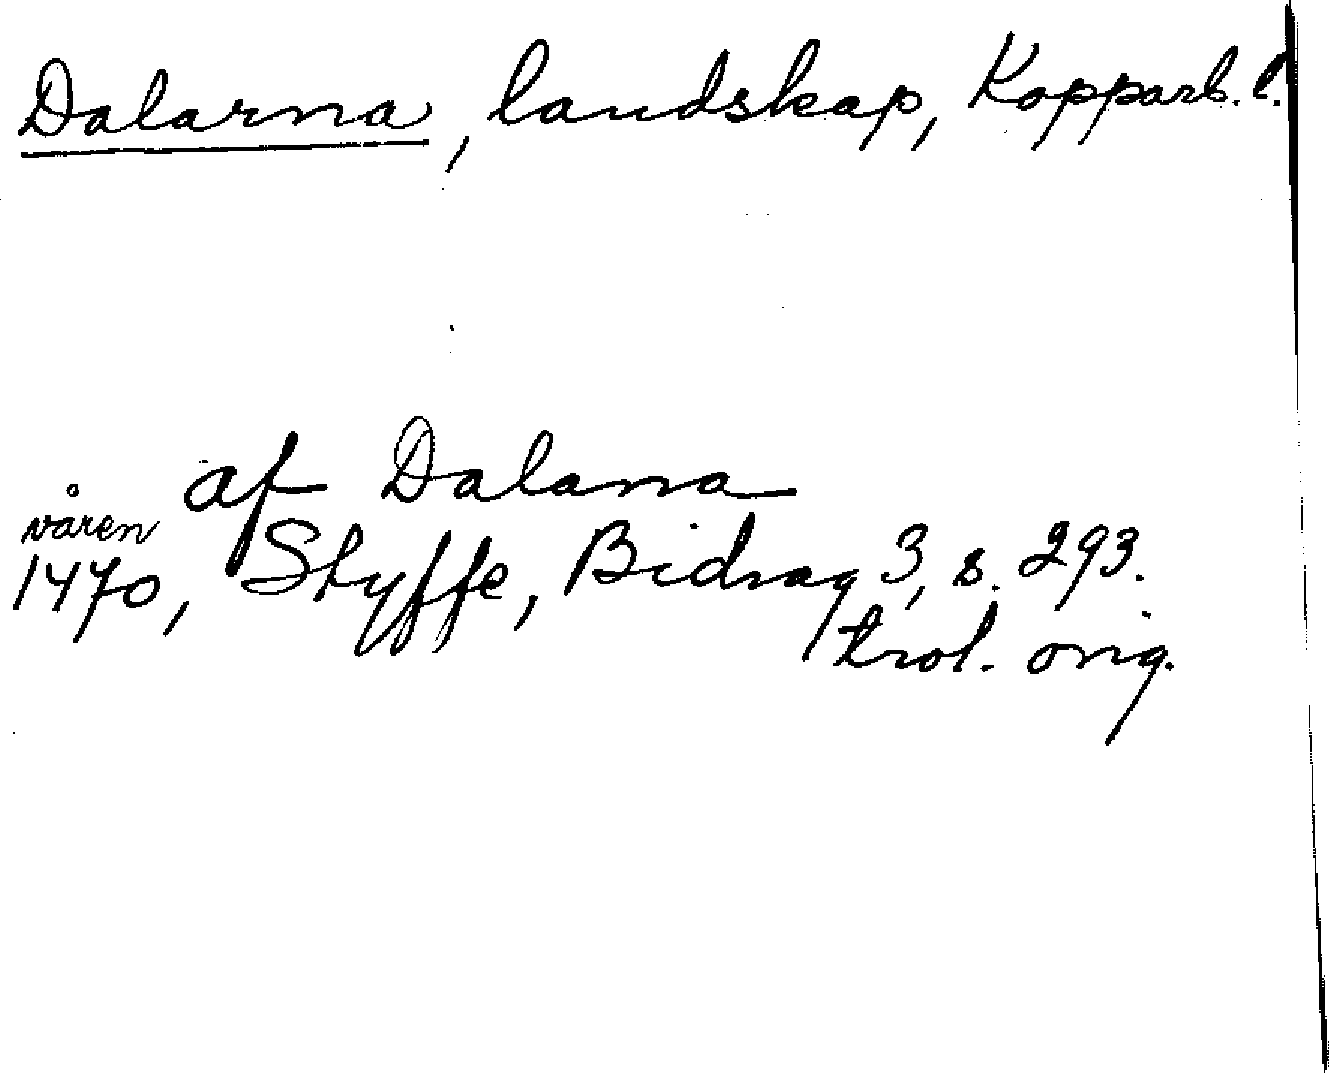 Dalarna, landskap, Kopparb. l.
af Dalarna
våren
1470, Styffe, Bidrag 3, s. 293.
trol. orig.